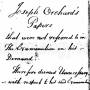 Joseph Orchard's
Papers
that were not referred to in
the Examination on his
Demand.
Therefore deemed Unnecessary
with respect to his